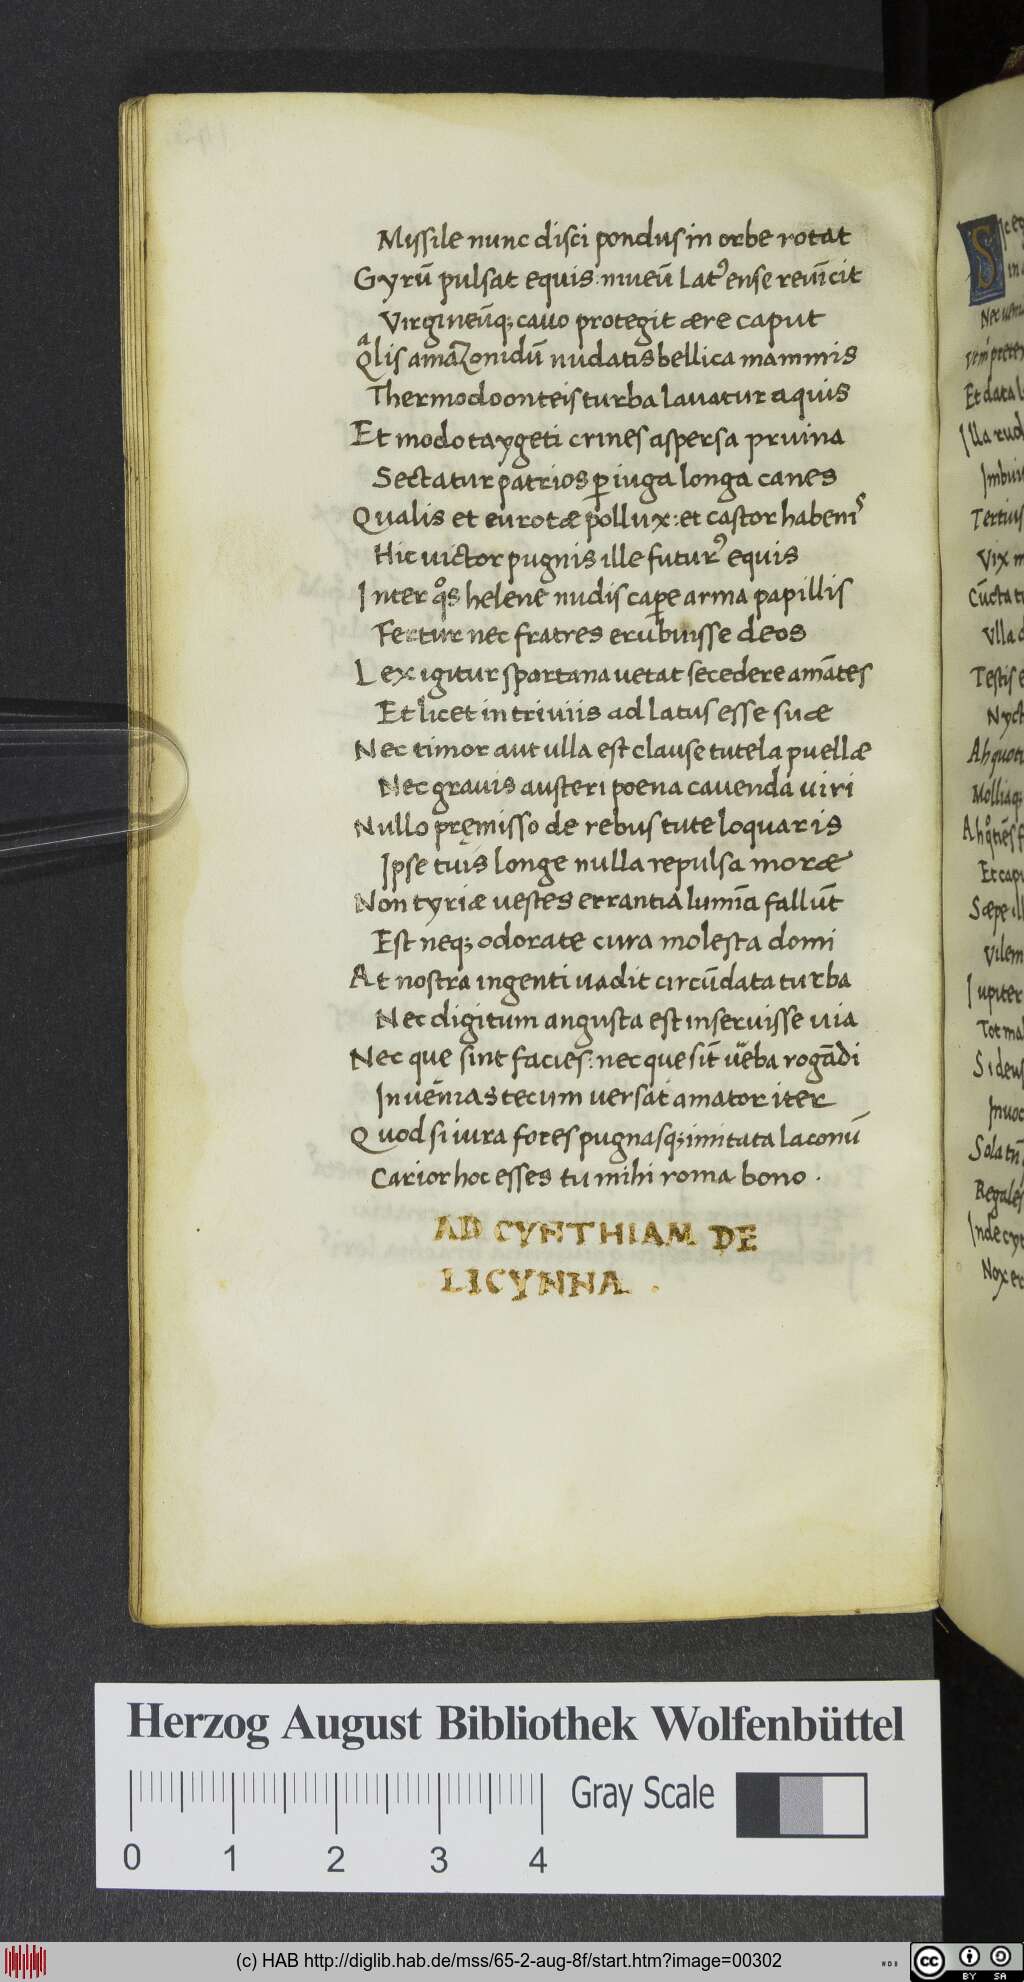 Missile nunc disci pondus in orbe rotat
Gyrū pulsat equis: niueū latꝰ ense reuīcit
Virgineūq; cauo protegit ære caput
Qᵃlis amaZonidū nudatis bellica mammis
Thermodoonteis turba lauatur aquis
Et modo taygeti crines aspersa pruina
Sectatur patrios ꝑ iuga longa canes
Qualis et eurotæ pollux: et castor habenıˢ
Hic uictor pugnis ille futurꝰ equis
Inter qᵒs helene nudis caꝑe arma papillis
Fertur nec fratres erubuisse deos
Lex igitur spartana uetat secedere amātes
Et licet in triuiis ad latus esse suæ
Nec timor aut ulla est clause tutela puellæ
Nec grauis austeri poena cauenda uiri
Nullo pręmisso de rebus tute loquaris
Ipse tuis longe nulla repulsa moræ
Non tyriæ uestes errantia lumīa fallūt
Est neq; odorate cura molesta domi
At nostra ingenti uadit circūdata turba
Nec digitum angusta est inseruisse uia
Nec que sint facies: nec que sīt ueba rogādi
Inuēnias tecum uersat amator iter
Quod si iura fores pugnasq; imitata laconū
Carior hoc esses tu mihi roma bono .
AD CYNTHIAM DE
LICYNNA .
S
Nec
Et data
Illa rud
Imbui
Tertius
Vix m
Cūcta
Vlla
Testis e
Nyct
Ah quoti
Molliaq;
Et capu
Sæpe ill
Vilem
Iupiter
Tot mal
Si deus
Inuoc
Sola tū
Regales
Inde cyt
Nox et
Herzog August Bibliothek Wolfenbüttel
Gray Scale
0 1 2 3 4
(c) HAB http://diglib.hab.de/mss/65-2-aug-8f/start.htm?image=00302
cc BY SA